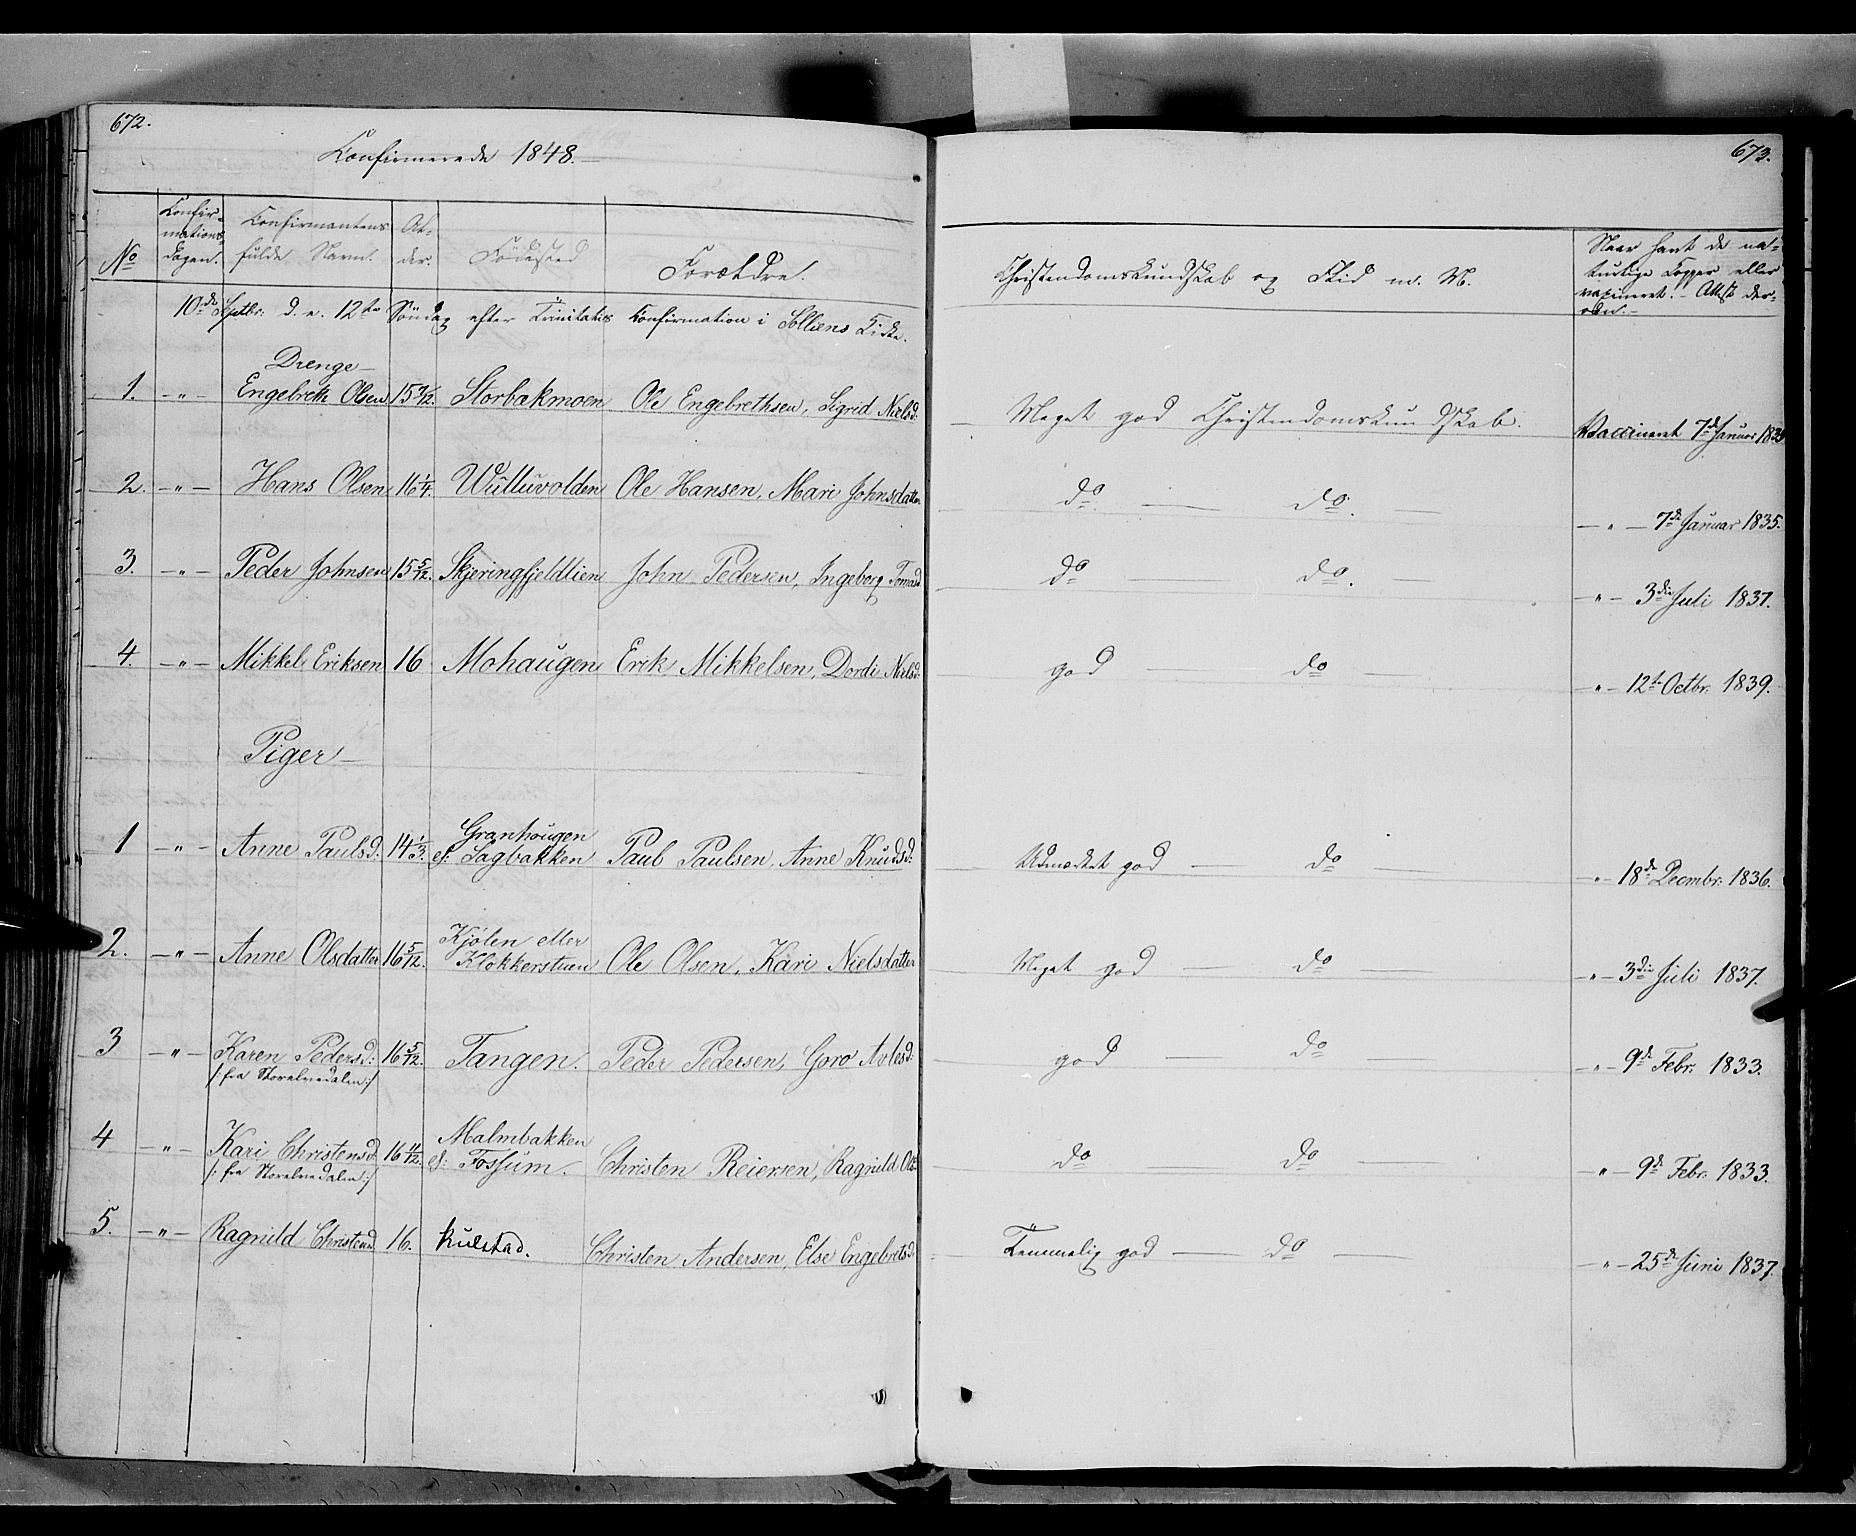 672.
Confirmerede 1848.
No
Confir-
mations-
dagen.
Confirmantens
fulde Navn.
Al-
der.
Fødested
Forældre.
10de Septbr. d. e. 12te Søndag efter Trinitatis Confirmation i Solliens Kirke.
Drenge
1. -"- Engebreth Olsen Storbakmoen Ole Engebrethsen, Sigrid Nielsd:
2. -"- Hans Olsen 16 1/4. Wulluvolden Ole Hansen, Mari Johnsdatter
3. -"- Peder Johnsen 15 5/12. Skjeringfjeldlien John Pedersen, Ingeborg Tomasd
4. -"- Mikkel Eriksen 16 Mohaugen Erik Mikkelsen, Dordi Nielsd:
Piger
1 -"- Anne Paulsd: 14 1/3. Granhougen
el: Sagbakken Paul Paulsen, Anne Knudsd:
2. -"- Anne Olsdatter 16 5/12. Kjølen eller
Klokkerstuen Ole Olsen, Kari Nielsdatter
3 -"- Karen Pedersd: 16 5/12. Tangen. Peder Pedersen, Goro Avlesd:
/: fra Storelvedalen :/
4 -"- Kari Christensd Malmbakken
el: Fossum. Christen Reiersen, Ragnild Ols:
/: fra Storelvedalen :/
5. -"- Ragnild Christensd 16. Kulstad. Christen Andersen, Else Engebritsd:
673.
Christendomskundskab og Flid m. M.
Naar havt de na-
turlige Kopper eller
vaxineret. - Attest der-
om.
Meget god Christendomskundskab. Vaccineret 7de Januar 1835
do do. -"- 7de Januar 1835.
do do. -"- 3die Juli 1837.
god do -"- 12te Octbr. 1839.
Udmærket god do -"- 18de Decembr. 1836.
Meget god do -"- 3die Juli 1837.
god do -"- 9de Febr. 1833.
do do -"- 9de Febr. 1833.
Temmelig god do -"- 25de Juni 1837.